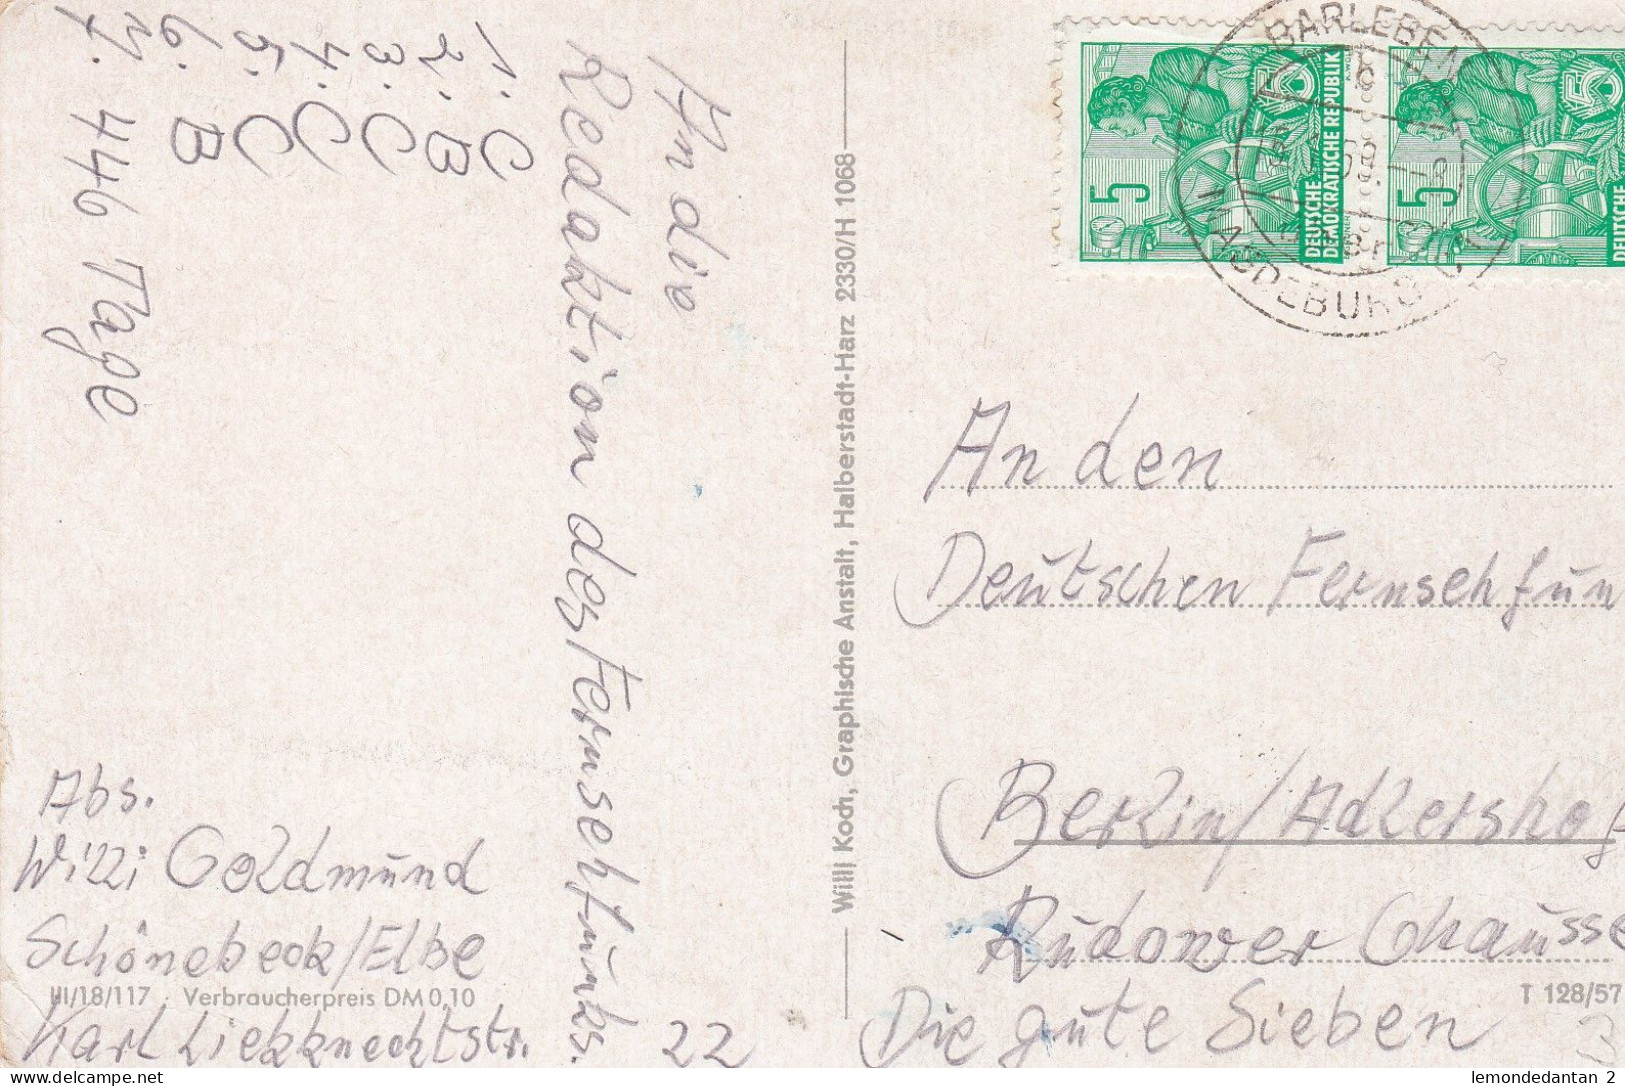 An die
Redaktion des Fernsehfunks.
1. C
2. B
3. C
4. C
5. C
6. B
7. 446 Tage
Abs.
Willi Goldmund
Schönebeck/Elbe
III/18/117 Verbraucherpreis DM 0,10
Karl Liebknechtstr. 22
Willi Koch, Graphische Anstalt, Halberstadt-Harz 2330/H 1068
5
DEUTSCHE
DEMOKRATISCHE REPUBLIK
5
5
DEUTSCHE
5
BARLEBEN
MAGDEBURG
An den
Deutschen Fernsehfun
Berlin/Adlershof
Rudower Chausse
T 128/57
Die gute Sieben
delcampe.net
lemondedantan 2